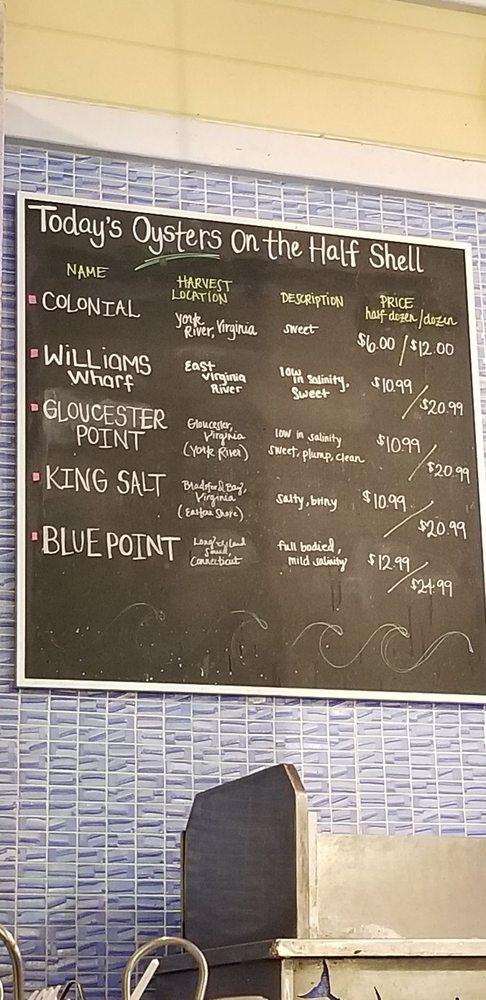 Today's Oysters On the Half Shell
NAME
HARVEST
LOCATION
DESCRIPTION
PRICE
half dozen/dozen
COLONIAL
York
River, Virginia
sweet
$6.00 / $12.00
WILLIAMS
Wharf
East
Virginia
River
low
in salinity,
Sweet
$10.99
/ $20.99
GLOUCESTER
POINT
Gloucester,
Virginia
(York River)
low in salinity
sweet, plump, clean
$10.99
/ $20.99
KING SALT
Bradford Bay,
Virginia
(Eastern Shore)
salty, briny
$10.99
/ $20.99
BLUE POINT
Long Island
Sound,
Connecticut
full bodied,
mild salinity
$12.99
/ $24.99